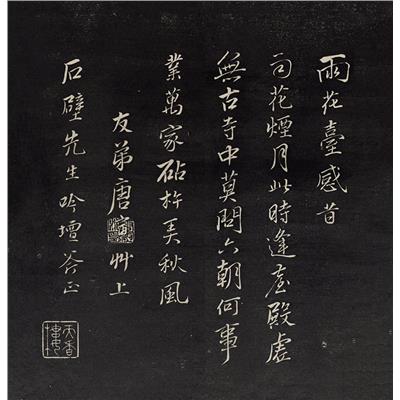 雨花臺感昔
花煙月此時逢殿虛
無古寺中莫問六朝何事
業萬家砧杵秋風
友弟唐艸上
石壁先生吟壇正